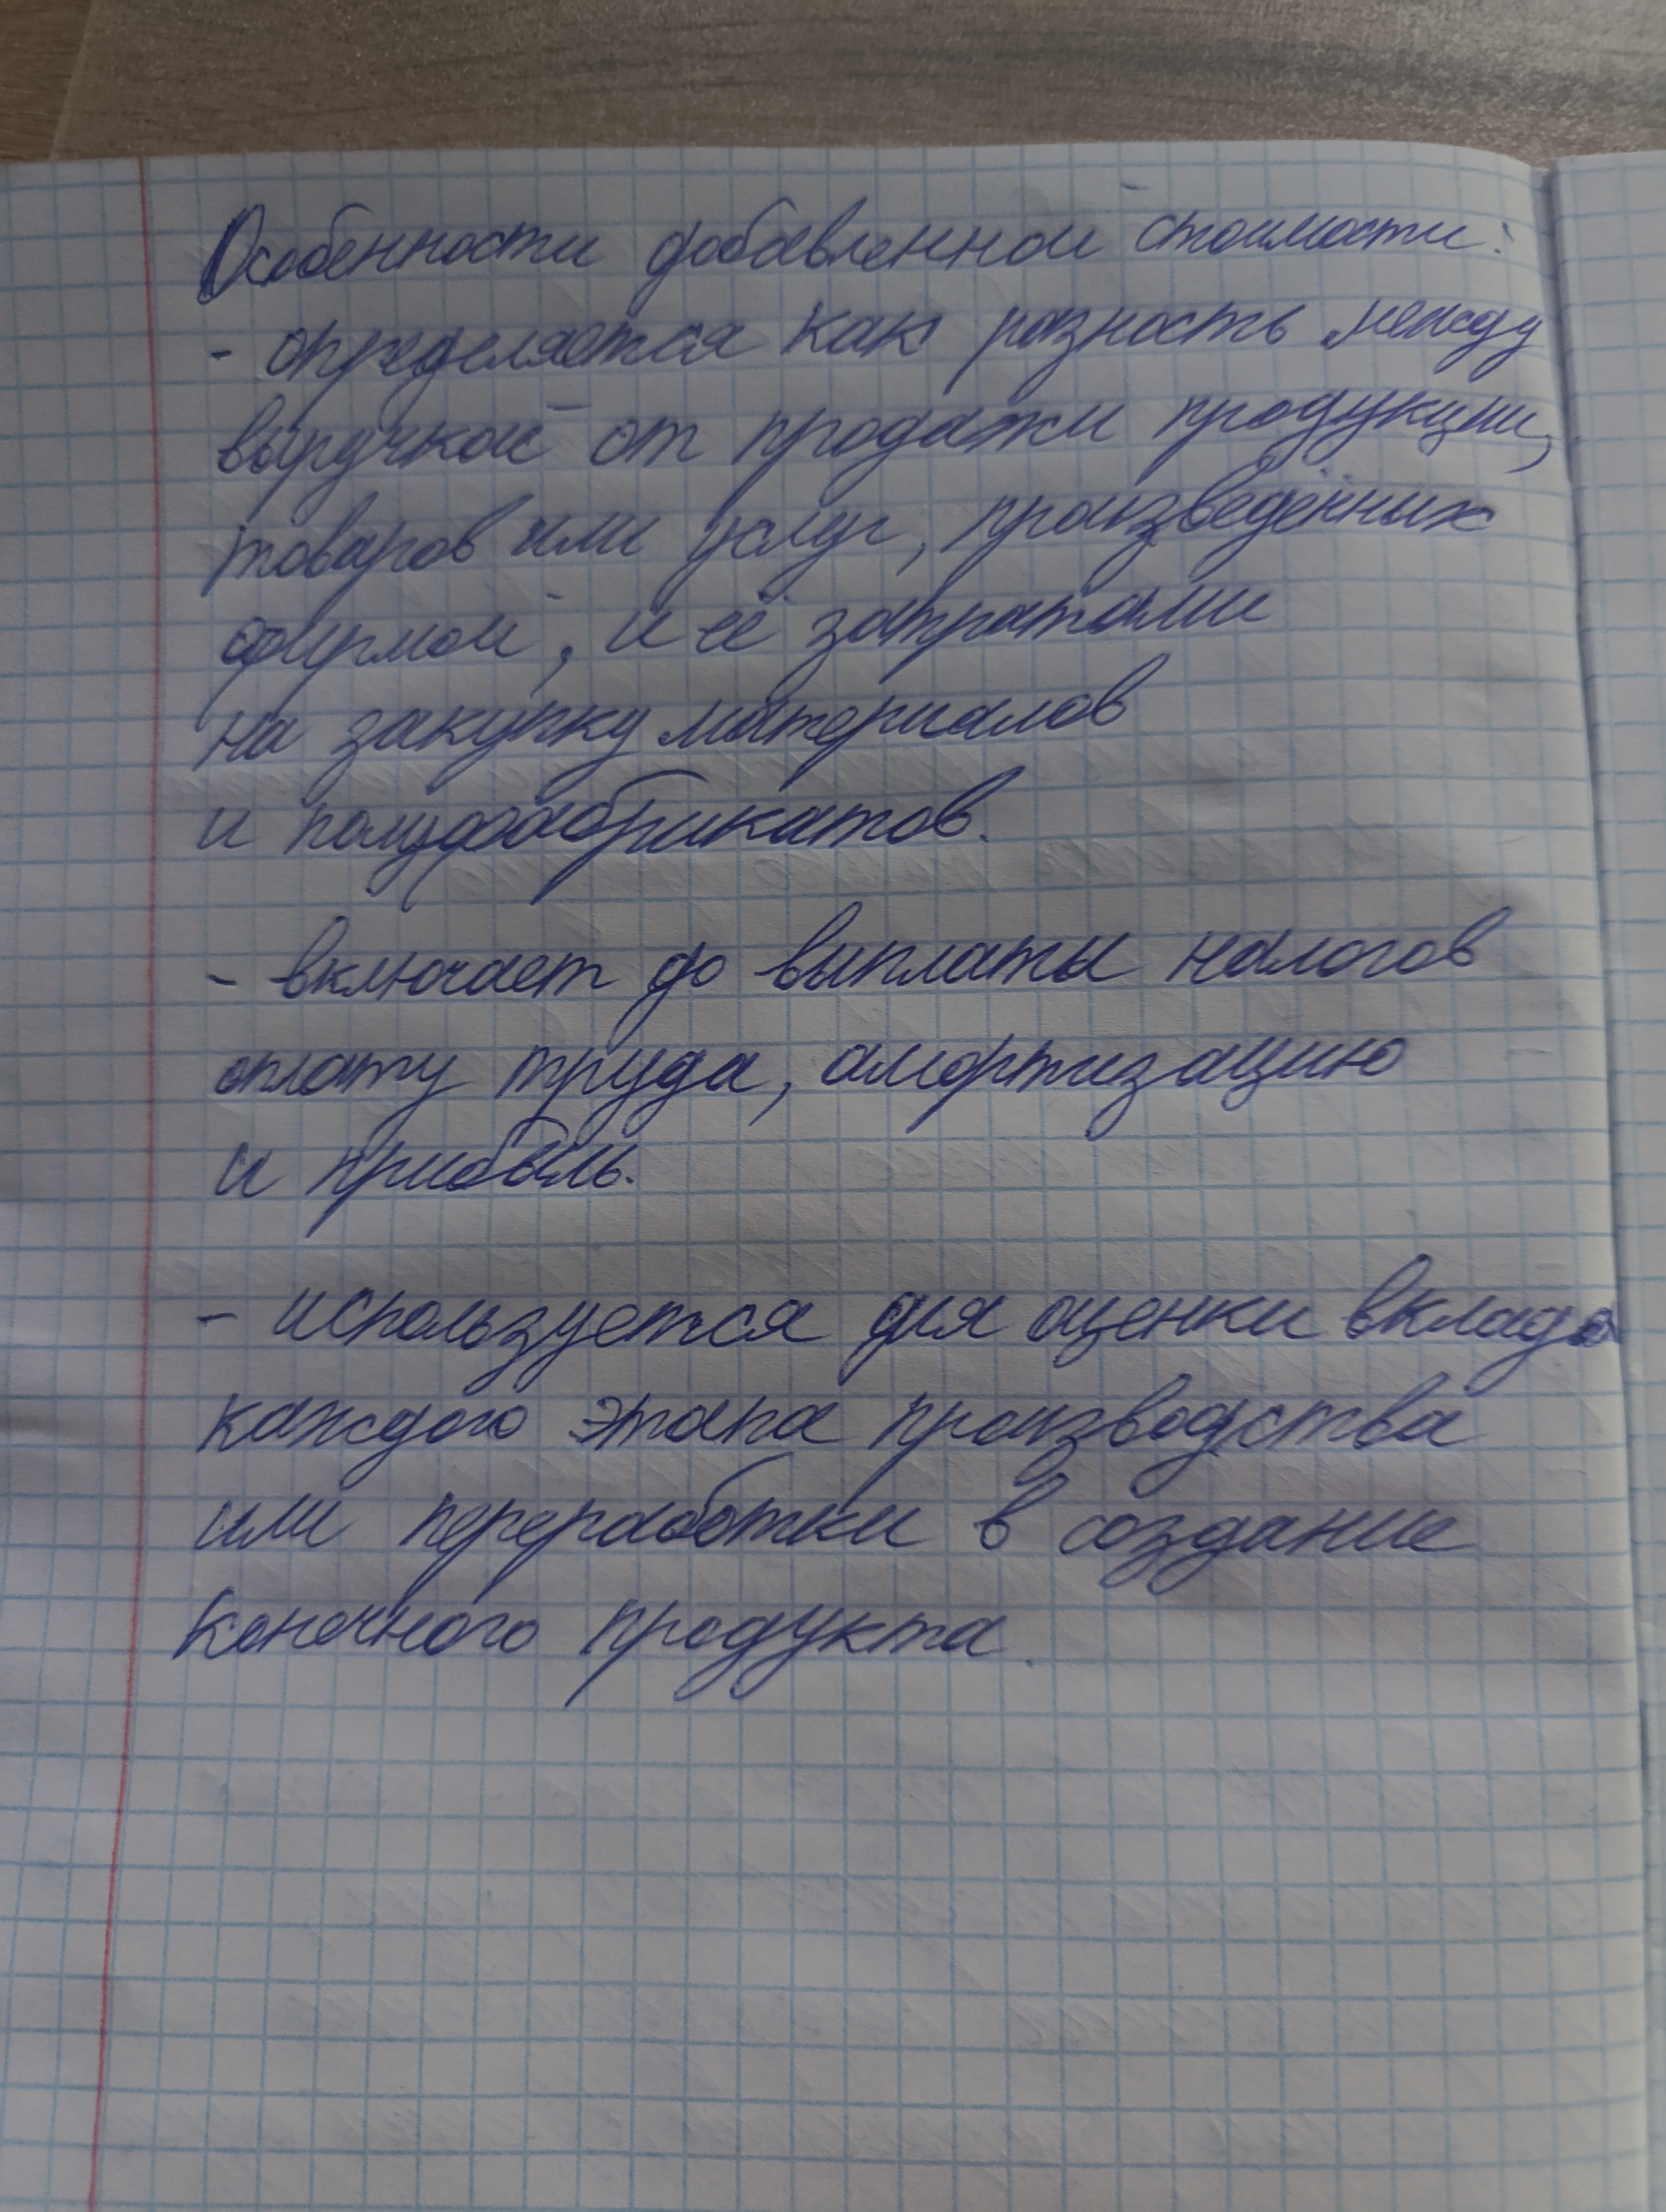 Особенности добавленной стоимости:
- определяется как разность между
выручкой от продажи продукции,
товаров или услуг, произведённых
фирмой, и её затратами
на закупку материалов
и полуфабрикатов.
- включает до выплаты налогов
оплату труда, амортизацию
и прибыль.
- используется для оценки вклада
каждого этапа производства
или переработки в создание
конечного продукта.